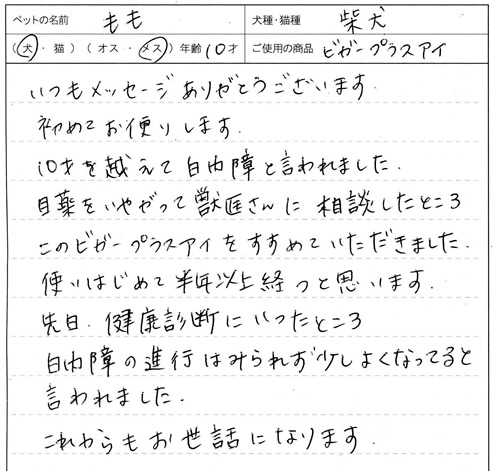 ペットの名前 もも 犬種・猫種 柴犬
(犬・猫)(オス・メス)年齢10才 ご使用の商品 ビガープラスアイ
いつもメッセージありがとうございます.
初めてお便りします.
10才を越えて白内障と言われました.
目薬をいやがって獣医さんに相談したところ
このビガープラスアイをすすめていただきました.
使いはじめて半年以上経つと思います.
先日.健康診断にいったところ
白内障の進行はみられず少しよくなってると
言われました.
これからもお世話になります.